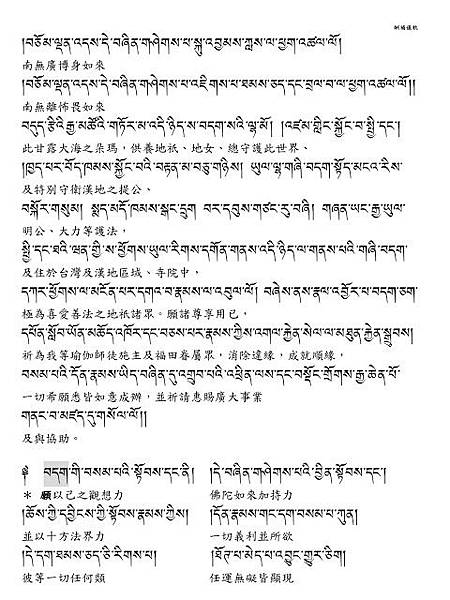 酬補儀軌
།བཅོམ་ལྡན་འདས་དེ་བཞིན་གཤེགས་པ་སྐུ་འབྱམས་ཀླས་ལ་ཕྱག་འཚལ་ལོ།
南無廣博身如來
།བཅོམ་ལྡན་འདས་དེ་བཞིན་གཤེགས་པ་འཇིགས་པ་ཐམས་ཅད་དང་བྲལ་བ་ལ་ཕྱག་འཚལ་ལོ།།
南無離怖畏如來
བདུད་རྩིའི་རྒྱ་མཚོའི་གཏོར་མ་འདི་ཉིད་ས་བདག་སའི་ལྷ་མོ། །འཛམ་གླིང་སྐྱོང་བ་སྤྱི་དང་།
此甘露大海之朵瑪，供養地祇、地女、總守護此世界、
།ཁྱད་པར་བོད་ཁམས་སྐྱོང་བའི་བརྟན་མ་བཅུ་གཉིས། ཡུལ་ལྷ་གཞི་བདག་སྟོད་མངའ་རིས་
及特別守衛漢地之提公、
བསྐོར་གསུམ། སྨད་མདོ་ཁམས་སྒང་དྲུག བར་དབུས་གཙང་རུ་བཞི། གཞན་ཡང་རྒྱ་ཡུལ་
明公、大力等護法，
སྤྱི་དང་ཐའི་ཝན་གྱི་ས་ཕྱོགས་ཡུལ་རིགས་དགོན་གནས་འདི་ཉིད་ལ་གནས་པའི་གཞི་བདག་
及住於台灣及漢地區域、寺院中，
དཀར་ཕྱོགས་ལ་མངོན་པར་དགའ་བ་རྣམས་ལ་འབུལ་ལོ། བཞེས་ནས་རྣལ་འབྱོར་པ་བདག་ཅག་
極為喜愛善法之地祇諸眾。願諸尊享用已，
དཔོན་སློབ་ཡོན་མཆོད་འཁོར་དང་བཅས་པར་རྣམས་ཀྱིས་འགལ་རྐྱེན་སེལ་ལ་མཐུན་རྐྱེན་སྒྲུབས།
祈為我等瑜伽師徒施主及福田眷屬眾，消除違緣，成就順緣，
བསམ་པའི་དོན་རྣམས་ཡིད་བཞིན་དུ་འགྲུབ་པའི་འཕྲིན་ལས་དང་བསྟོང་གྲོགས་རྒྱ་ཆེན་པོ་
一切希願悉皆如意成辦，並祈請惠賜廣大事業
གནང་བ་མཛད་དུ་གསོལ་ལོ།།
及與協助。
༈ བདག་གི་བསམ་པའི་སྟོབས་དང་ནི། །དེ་བཞིན་གཤེགས་པའི་བྱིན་སྟོབས་དང་།
＊ 願以己之觀想力 佛陀如來加持力
།ཆོས་ཀྱི་དབྱིངས་ཀྱི་སྟོབས་རྣམས་ཀྱིས། །དོན་རྣམས་གང་དག་བསམ་པ་ཀུན།
並以十方法界力 一切義利並所欲
།དེ་དག་ཐམས་ཅད་ཅི་རིགས་པ། །ཐོགས་པ་མེད་པ་འབྱུང་གྱུར་ཅིག།
彼等一切任何類 任運無礙皆顯現